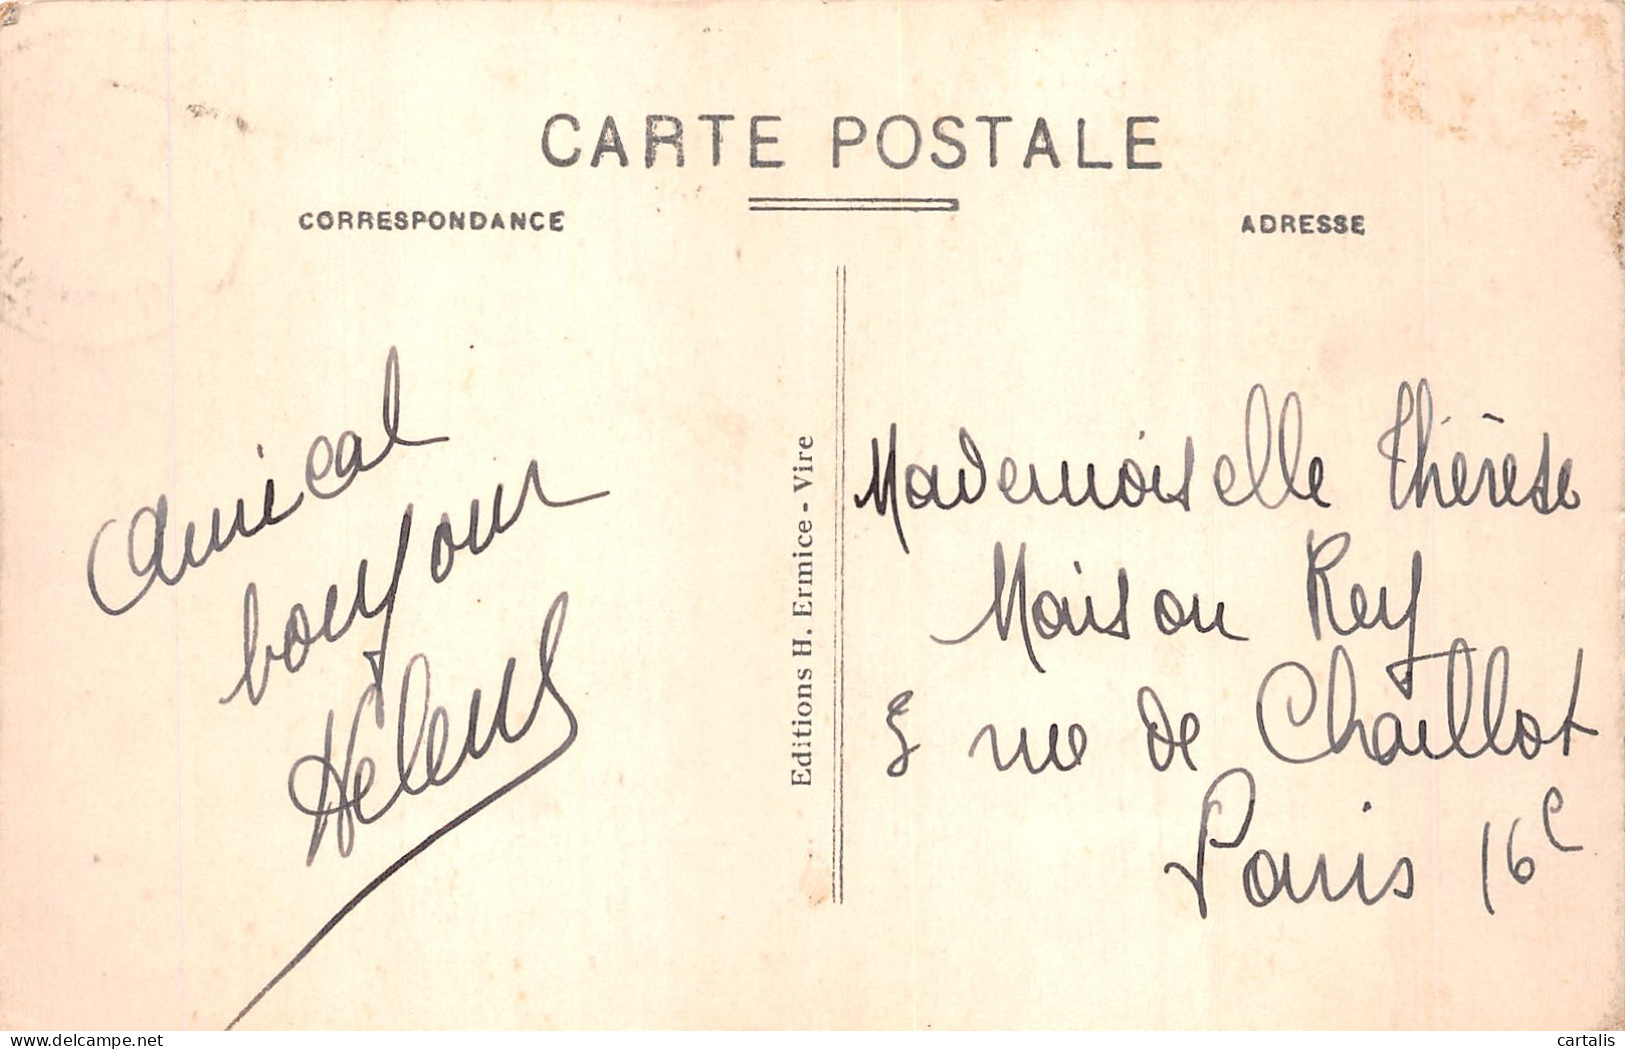 CARTE POSTALE
CORRESPONDANCE
ADRESSE
Amical
bonjour
Hélène
Editions H. Ermice - Vire
Mademoiselle Thérèse
Maison Rey
5 rue de Chaillot
Paris 16e
delcampe.net
cartalis